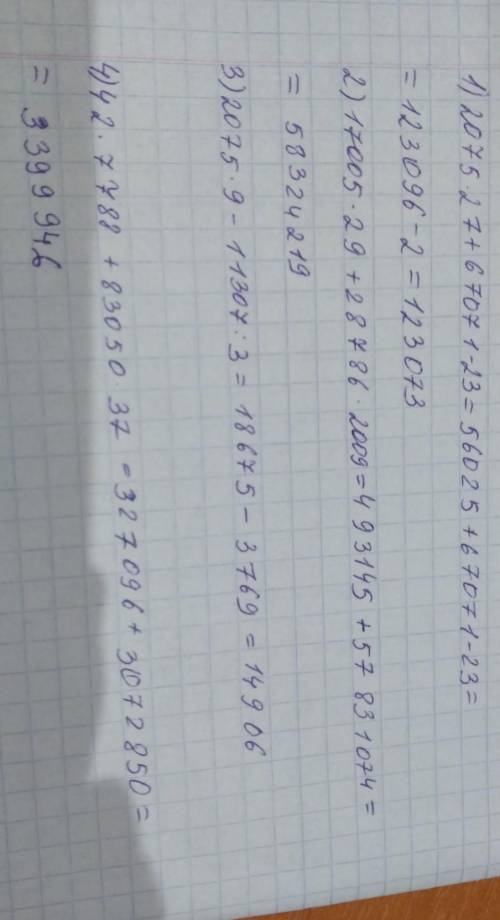 1) 2075·27+67071-23=56025+67071-23=
=123096-2=123073
2) 17005·29+28786·2009=493145+57831074=
= 58324219
3) 2075·9-11307:3=18675-3769=14906
4) 42·7788+83050·37=327096+3072850=
= 3399946